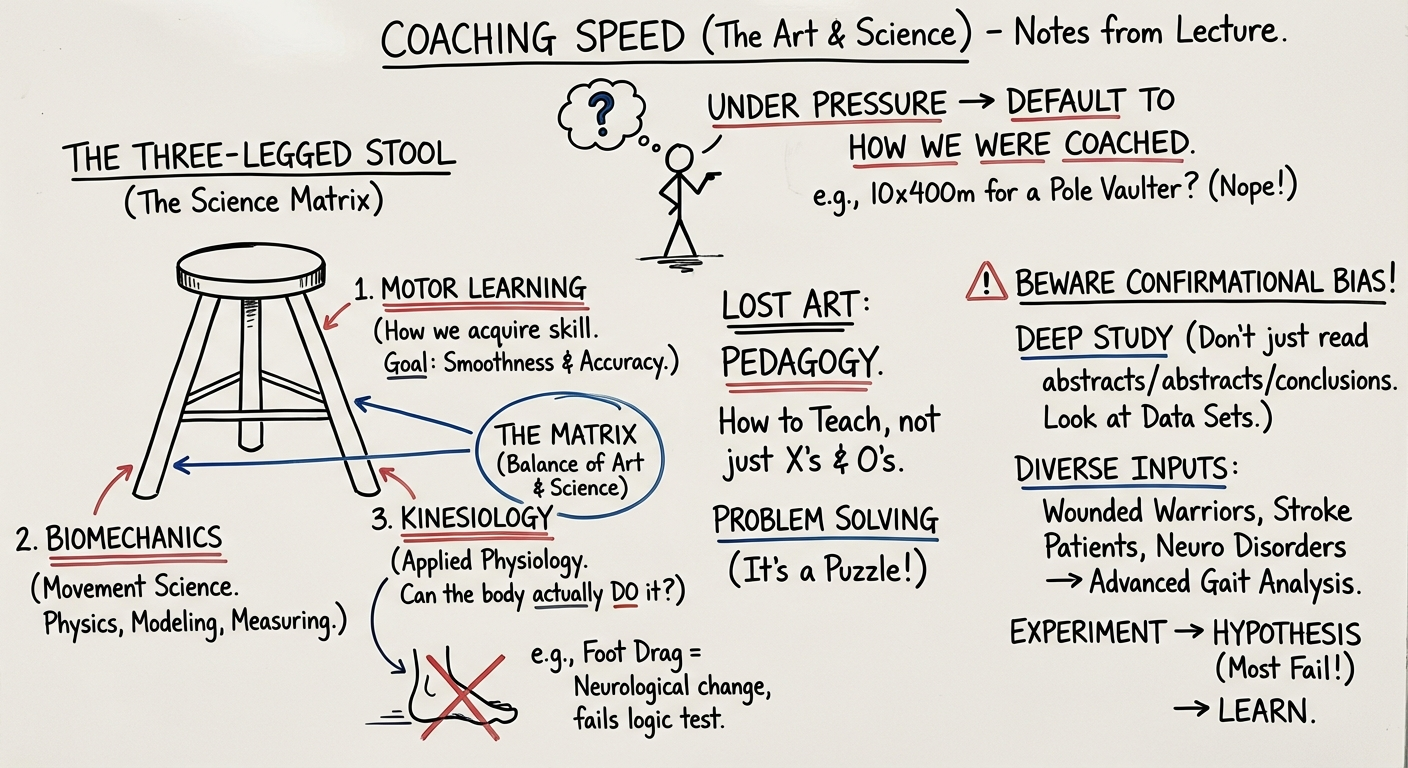 COACHING SPEED (The Art & Science) – Notes from Lecture.
?
UNDER PRESSURE → DEFAULT TO
HOW WE WERE COACHED.
e.g., 10x400m for a Pole Vaulter? (Nope!)
THE THREE-LEGGED STOOL
(The Science Matrix)
1. MOTOR LEARNING
(How we acquire skill.
Goal: Smoothness & Accuracy.)
THE MATRIX
(Balance of Art
& Science)
2. BIOMECHANICS
(Movement Science.
Physics, Modeling, Measuring.)
3. KINESIOLOGY
(Applied Physiology.
Can the body actually DO it?)
e.g., Foot Drag =
Neurological change,
fails logic test.
LOST ART:
PEDAGOGY.
How to Teach, not
just X's & O's.
PROBLEM SOLVING
(It's a Puzzle!)
! BEWARE CONFIRMATIONAL BIAS!
DEEP STUDY (Don't just read
abstracts/abstracts/conclusions.
Look at Data Sets.)
DIVERSE INPUTS:
Wounded Warriors, Stroke
Patients, Neuro Disorders
→ Advanced Gait Analysis.
EXPERIMENT → HYPOTHESIS
(Most Fail!)
→ LEARN.